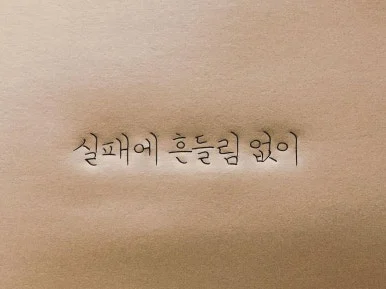 실패에 흔들림 없이